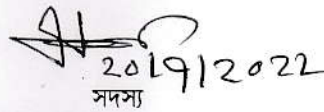 20/9/2022
সদস্য